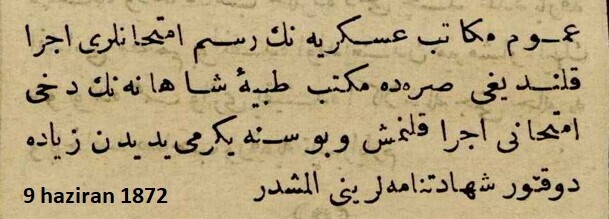 عمـوم مكاتب عسـكريه نك رسـم امتحانلرى اجرا
قلنديغى صره‌ده مكتب طبيهٔ شاهانه نك دخى
امتحانى اجرا قلنمش و بو سنه يكرمى يديدن زياده
دوقتور شهادتنامه‌لرينى المشدر
9 haziran 1872